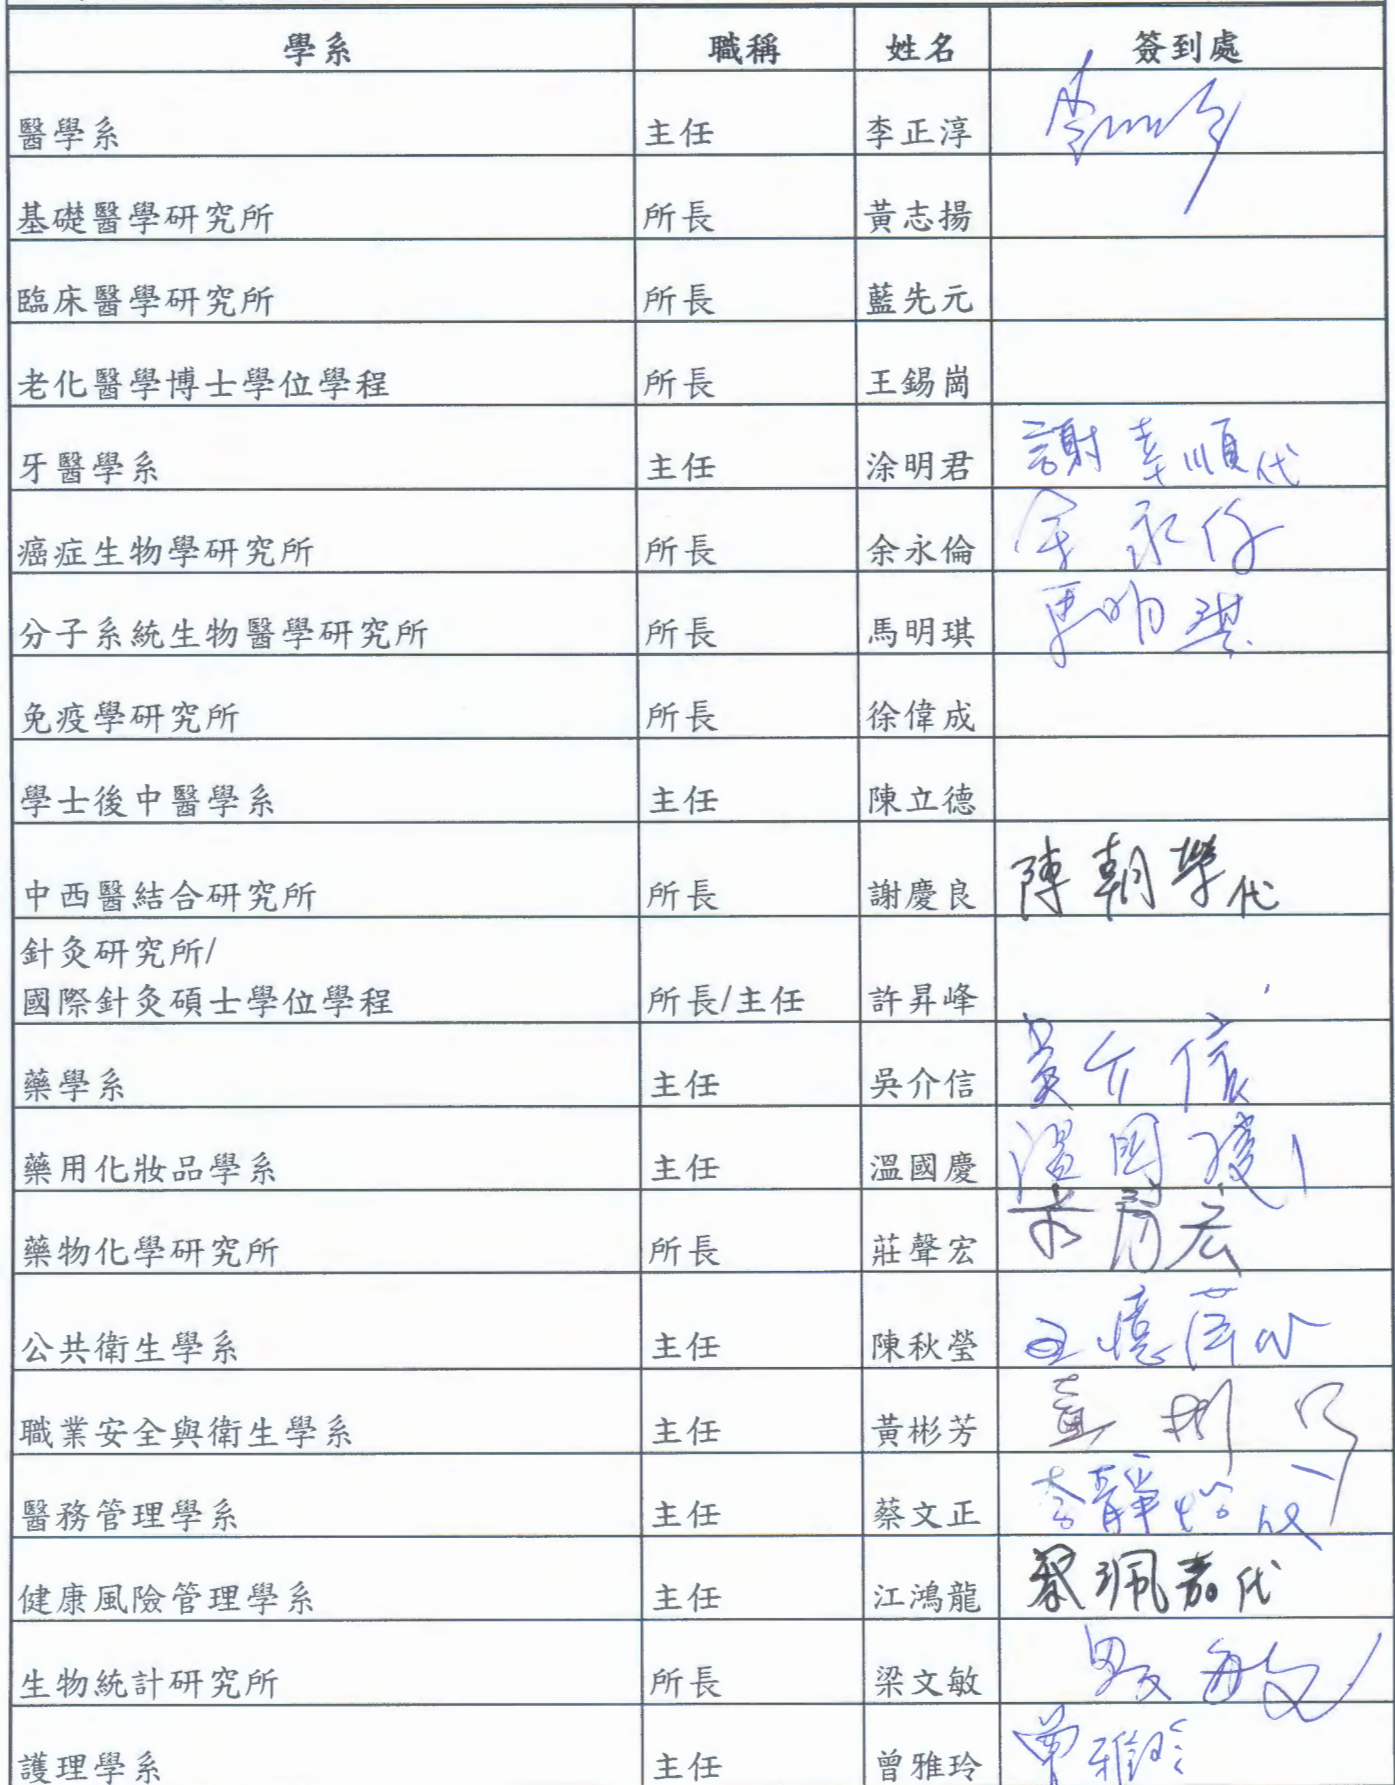 學系 職稱 姓名 簽到處
醫學系 主任 李正淳
基礎醫學研究所 所長 黃志揚
臨床醫學研究所 所長 藍先元
老化醫學博士學位學程 所長 王錫崗
牙醫學系 主任 涂明君 謝幸順代
癌症生物學研究所 所長 余永倫 余永
分子系統生物醫學研究所 所長 馬明琪 馬明琪
免疫學研究所 所長 徐偉成
學士後中醫學系 主任 陳立德
中西醫結合研究所 所長 謝慶良 陳朝榮代
針灸研究所/
國際針灸碩士學位學程 所長/主任 許昇峰
藥學系 主任 吳介信 吳介信
藥用化妝品學系 主任 溫國慶 溫國慶
藥物化學研究所 所長 莊聲宏
公共衛生學系 主任 陳秋瑩
職業安全與衛生學系 主任 黃彬芳 黃彬芳
醫務管理學系 主任 蔡文正 李靜怡代
健康風險管理學系 主任 江鴻龍 蔡珮嘉代
生物統計研究所 所長 梁文敏
護理學系 主任 曾雅玲 曾雅玲